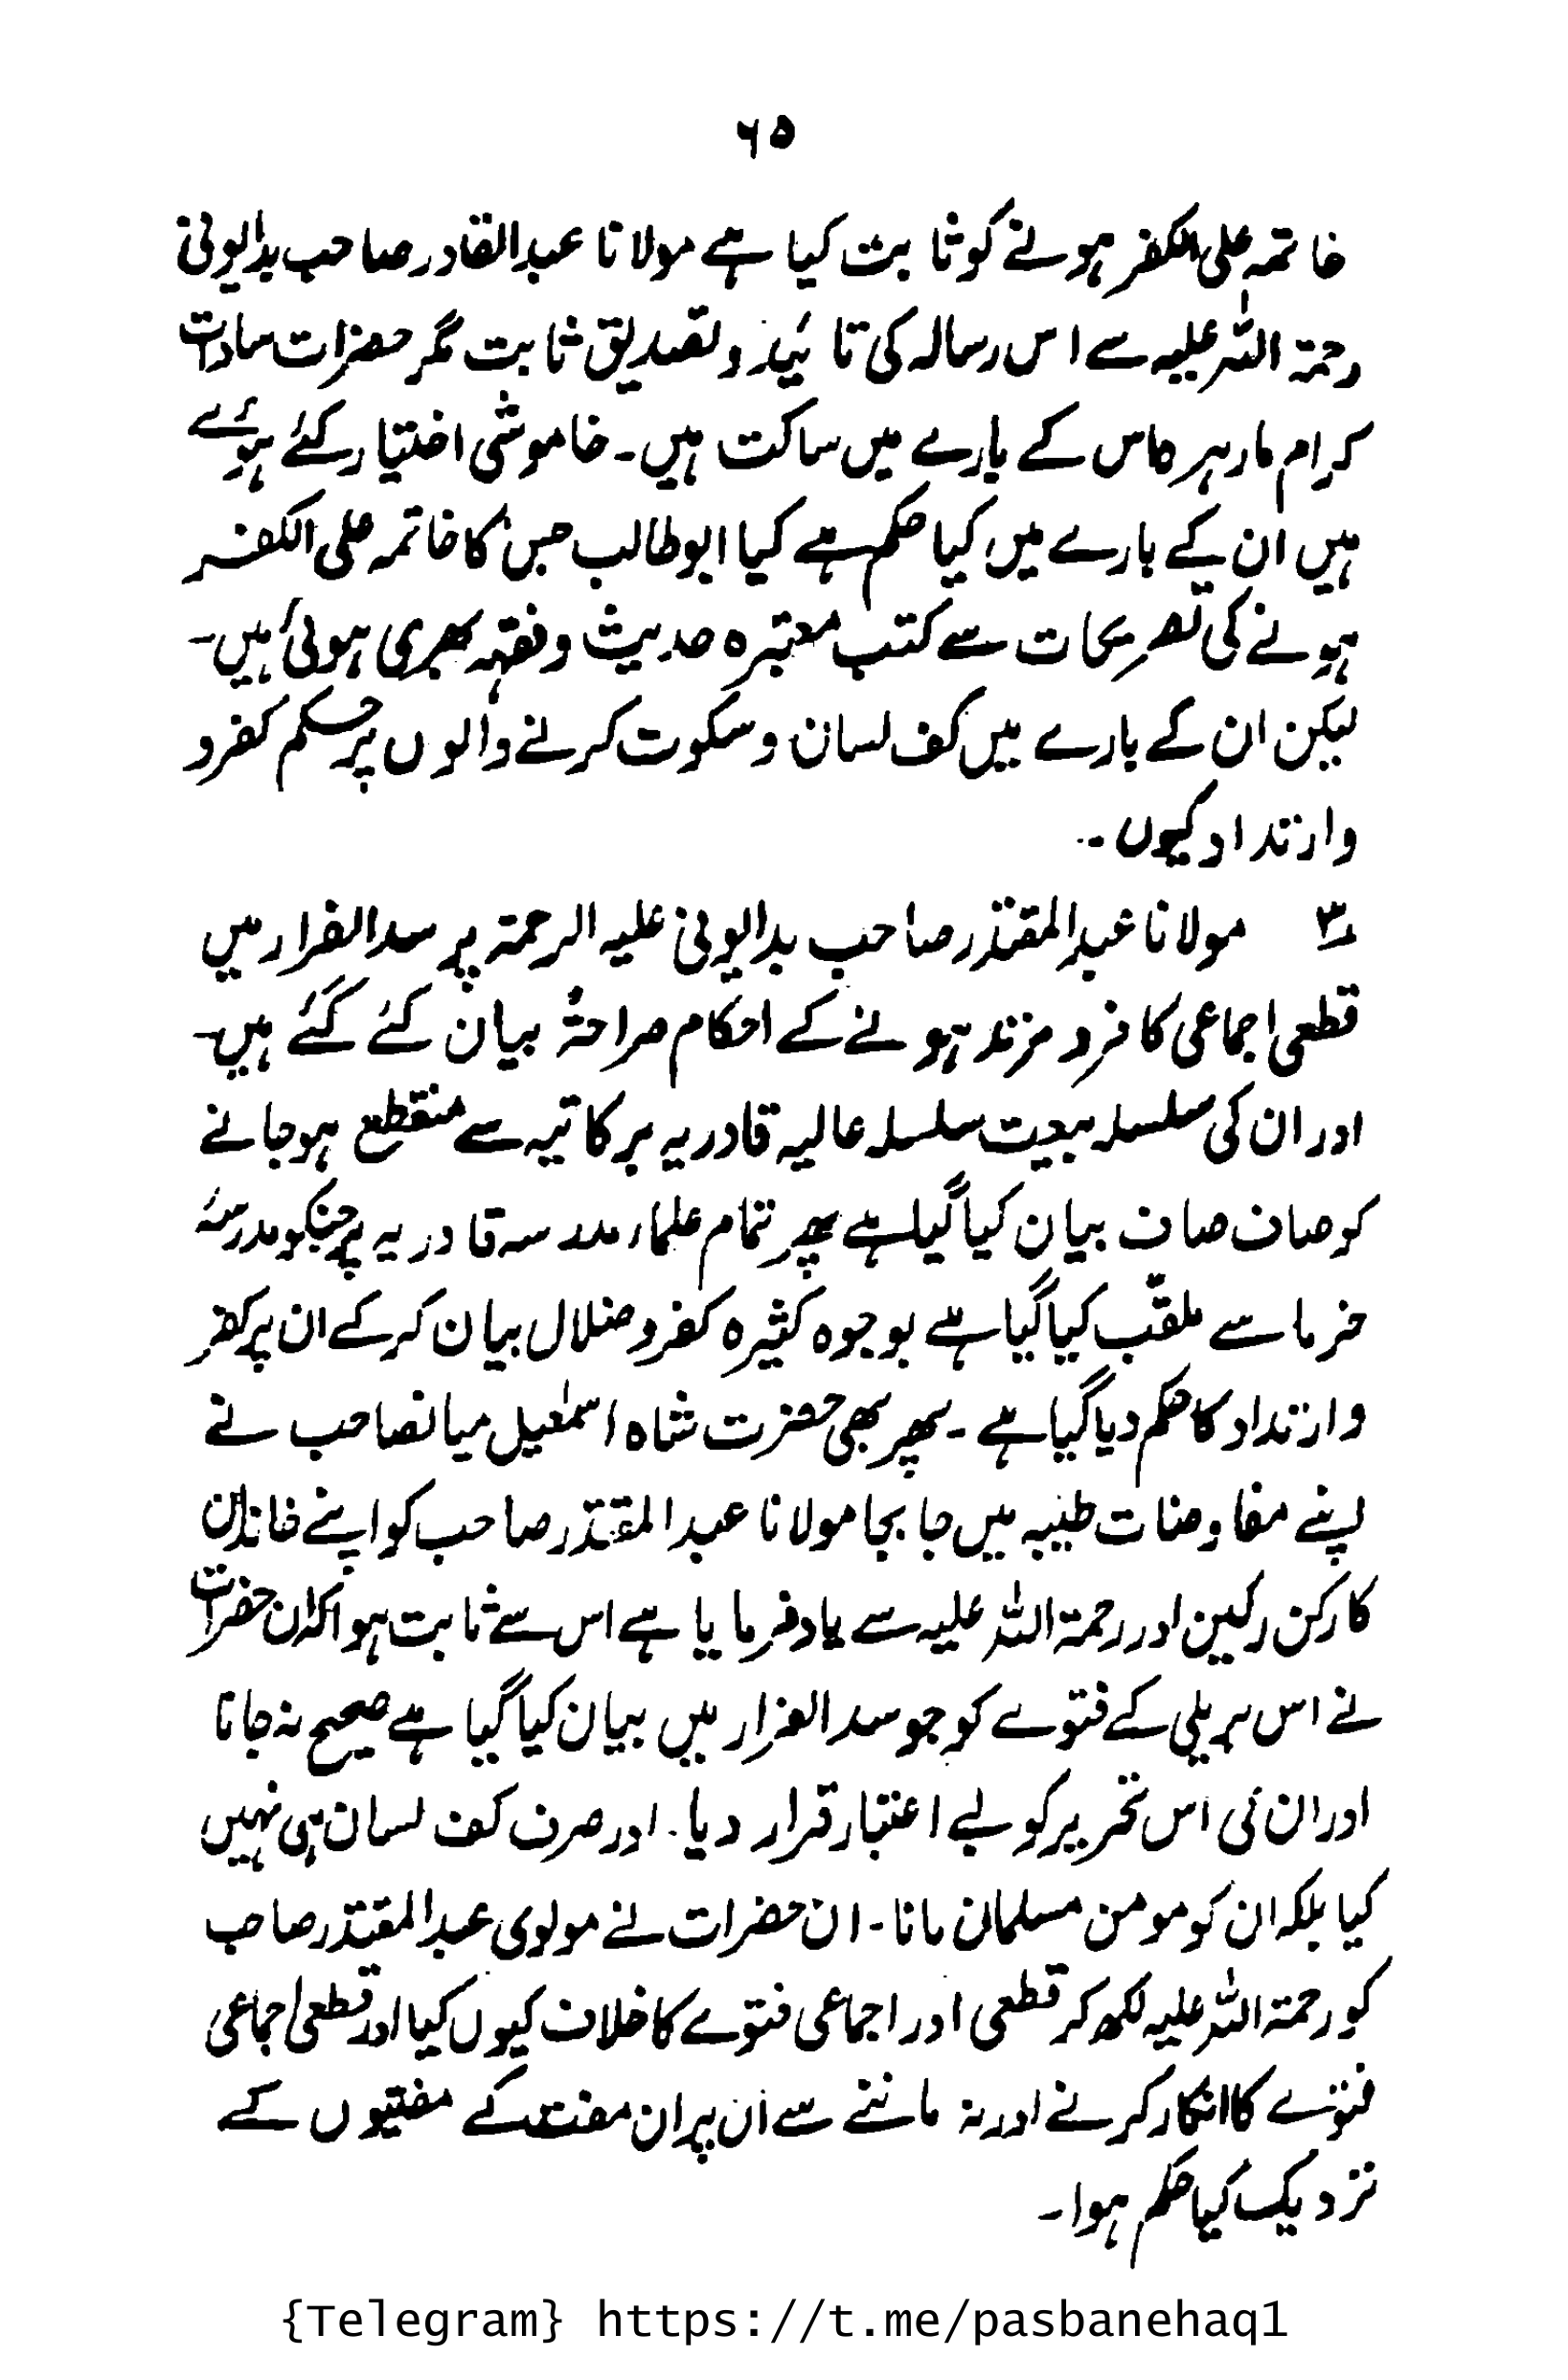 ۶۵
خاتمہ علی الکفر ہونے کو ثابت کیا ہے مولانا عبدالقادر صاحب بدایونی
رحمۃ اللہ علیہ سے اس رسالہ کی تائید و تصدیق ثابت مگر حضرات سادات
کرام مارہرہ اس کے بارے میں ساکت ہیں۔ خاموشی اختیار کئے ہوئے
ہیں ان کے بارے میں کیا حکم ہے کیا ابوطالب جس کا خاتمہ علی الکفر
ہونے کی تصریحات سے کتب معتبرہ حدیث و فقہ بھری ہوئی ہیں۔
لیکن ان کے بارے میں کف لسان و سکوت کرنے والوں پر حکم کفر و
وارتداد کیوں۔
۳ مولانا عبدالمقتدر صاحب بدایونی علیہ الرحمۃ پر سدالفرار میں
قطعی اجماعی کافر و مرتد ہونے کے احکام صراحۃً بیان کئے گئے ہیں۔
اور ان کی سلسلہ بیعت سلسلہ عالیہ قادریہ برکاتیہ سے منقطع ہوجانے
کو صاف صاف بیان کیا گیا ہے پھر تمام علماء مدرسہ قادریہ پر جنکو مدرسۂ
خرما سے ملقّب کیا گیا ہے بوجوہ کثیرہ کفر و ضلال بیان کرکے ان پر کفر
وارتداد کا حکم دیا گیا ہے۔ پھر بھی حضرت شاہ اسمٰعیل میانصاحب نے
اپنے مفاوضات طیبہ میں جا بجا مولانا عبدالمقتدر صاحب کو اپنے خاندان
کا رکن رکین اور رحمۃ اللہ علیہ سے یاد فرمایا ہے اس سے ثابت ہوا کہ ان حضرات
نے اس بریلی کے فتوے کو جو سدالفرار میں بیان کیا گیا ہے صحیح نہ جانا
اور ان کی اس تحریر کو بے اعتبار قرار دیا۔ اور صرف کف لسان ہی نہیں
کیا بلکہ ان کو مومن مسلمان مانا۔ ان حضرات نے مولوی عبدالمقتدر صاحب
کو رحمۃ اللہ علیہ لکھ کر قطعی اور اجماعی فتوے کا خلاف کیوں کیا اور قطعی اجماعی
فتوے کا انکار کرنے اور نہ ماننے سے ان پر ان مفت کے مفتیوں کے
نزدیک کیا حکم ہوا۔
{Telegram} https://t.me/pasbanehaq1